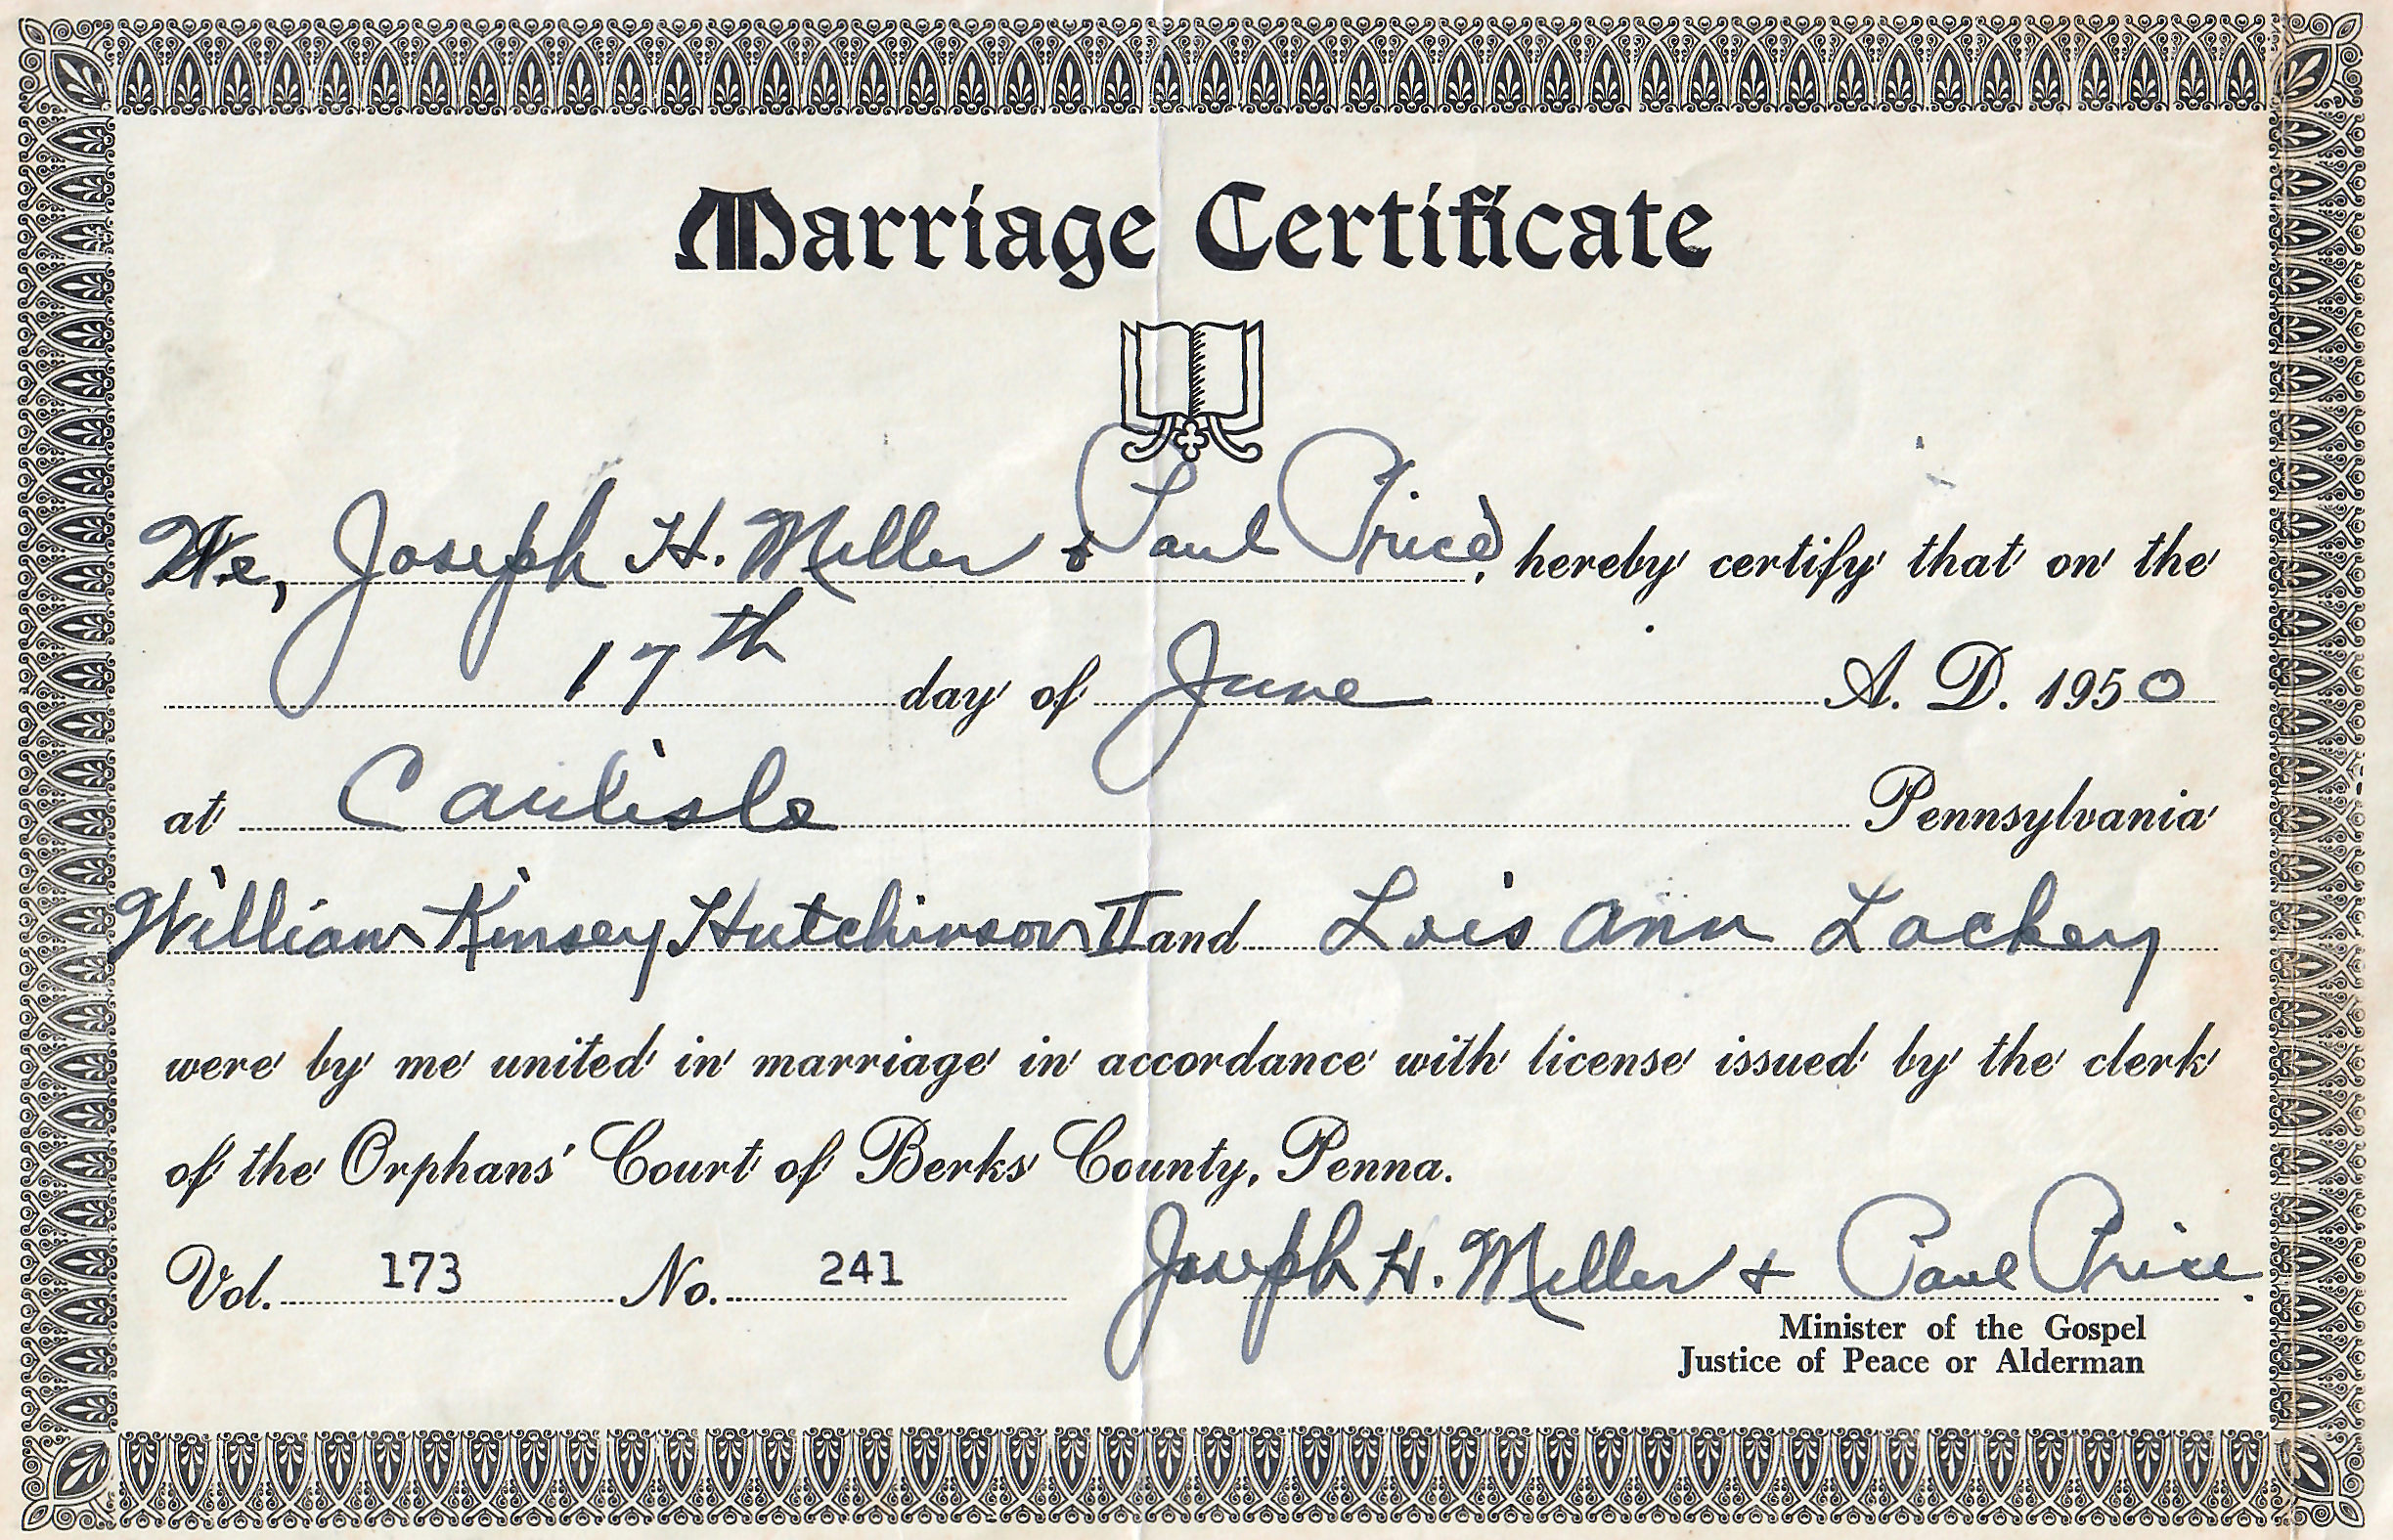 Marriage Certificate
We, Joseph H. Miller & Paul Price, hereby certify that on the
17th day of June A. D. 1950
at Carlisle Pennsylvania
William Kinsey Hutchinson II and Lois Ann Lackey
were by me united in marriage in accordance with license issued by the clerk
of the Orphans' Court of Berks County, Penna.
Vol. 173 No. 241 Joseph H. Miller + Paul Price.
Minister of the Gospel
Justice of Peace or Alderman